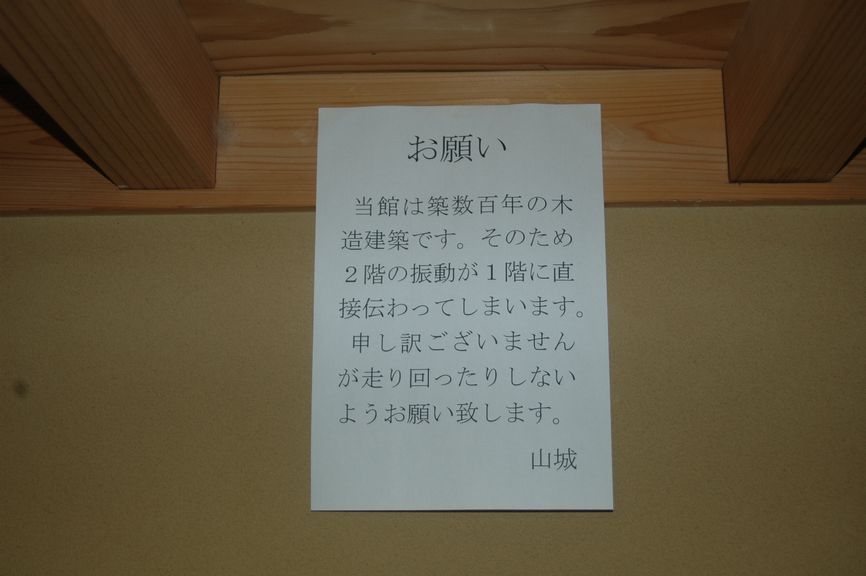 お願い
当館は築数百年の木
造建築です。そのため
２階の振動が１階に直
接伝わってしまいます。
申し訳ございません
が走り回ったりしない
ようお願い致します。
山城